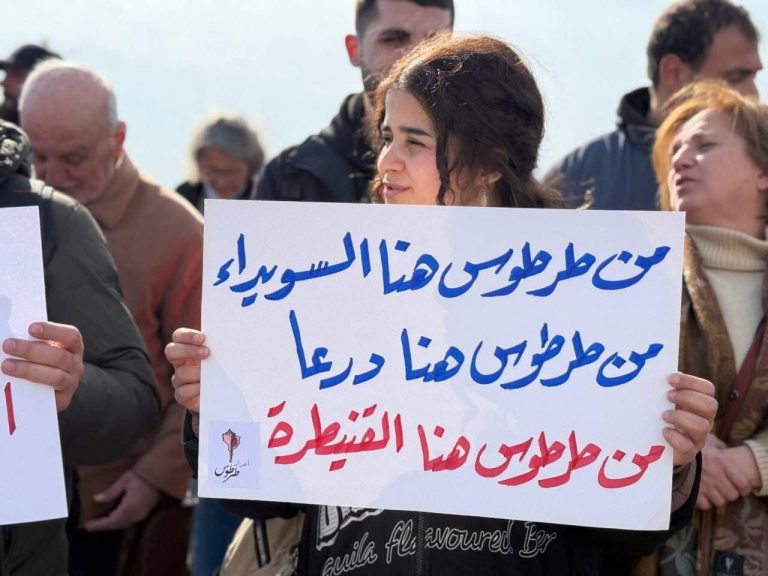 من طرطوس هنا السويداء
من طرطوس هنا درعا
من طرطوس هنا القنيطرة
طرطوس
flavoured Ber